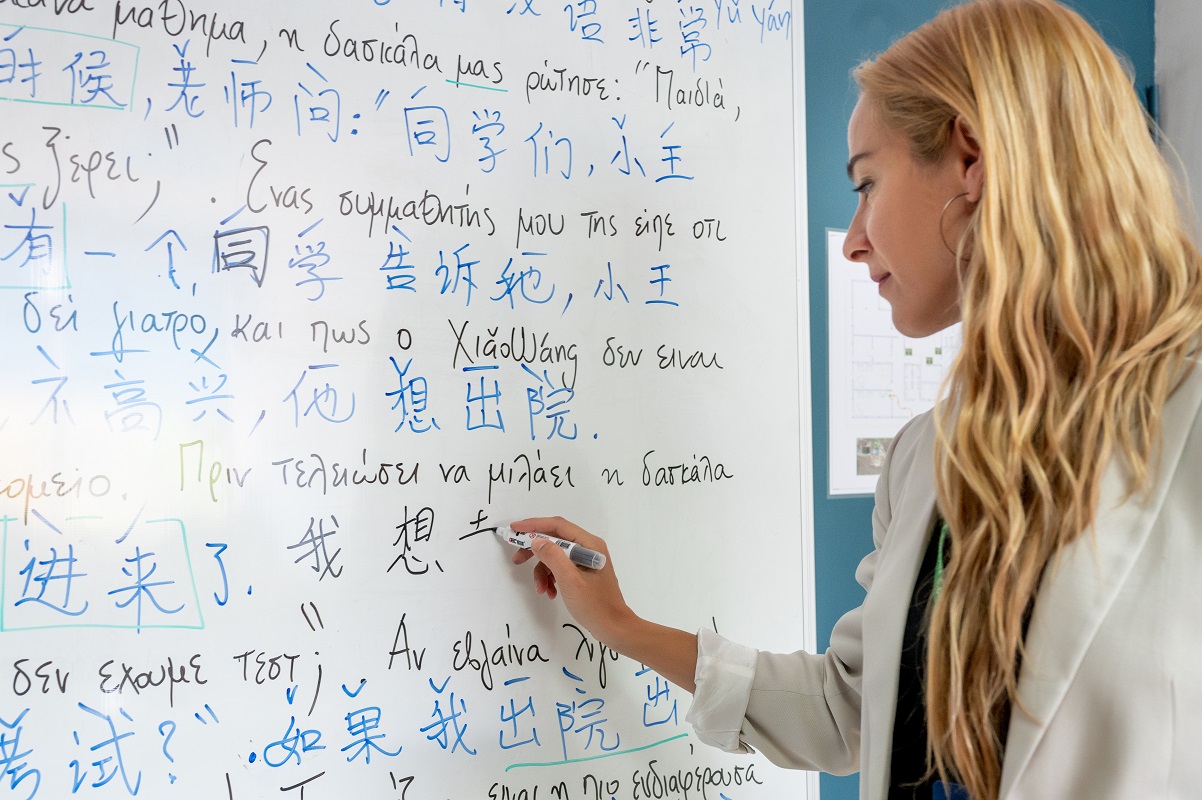 语 非 常 Yǔ yán
μαθημα, η δασκάλα μας ρώτησε: "Παιδιά,
时候, 老师问: "同学们, 小王
ς ξέρει;". Ένας συμμαθητής μου της είπε οτι
有一个同学告诉他, 小王
δεί γιατρό, και πως ο XiǎoWáng δεν ειναι
不高兴, 他想出院.
ομείο. Πριν τελειώσει να μιλάει η δασκάλα
进来了. 我想
δεν εχουμε τεστ;". Αν εβγαίνα λίγο
考试?". 如果我出院
ειναι η πιο ενδιαφέρουσα